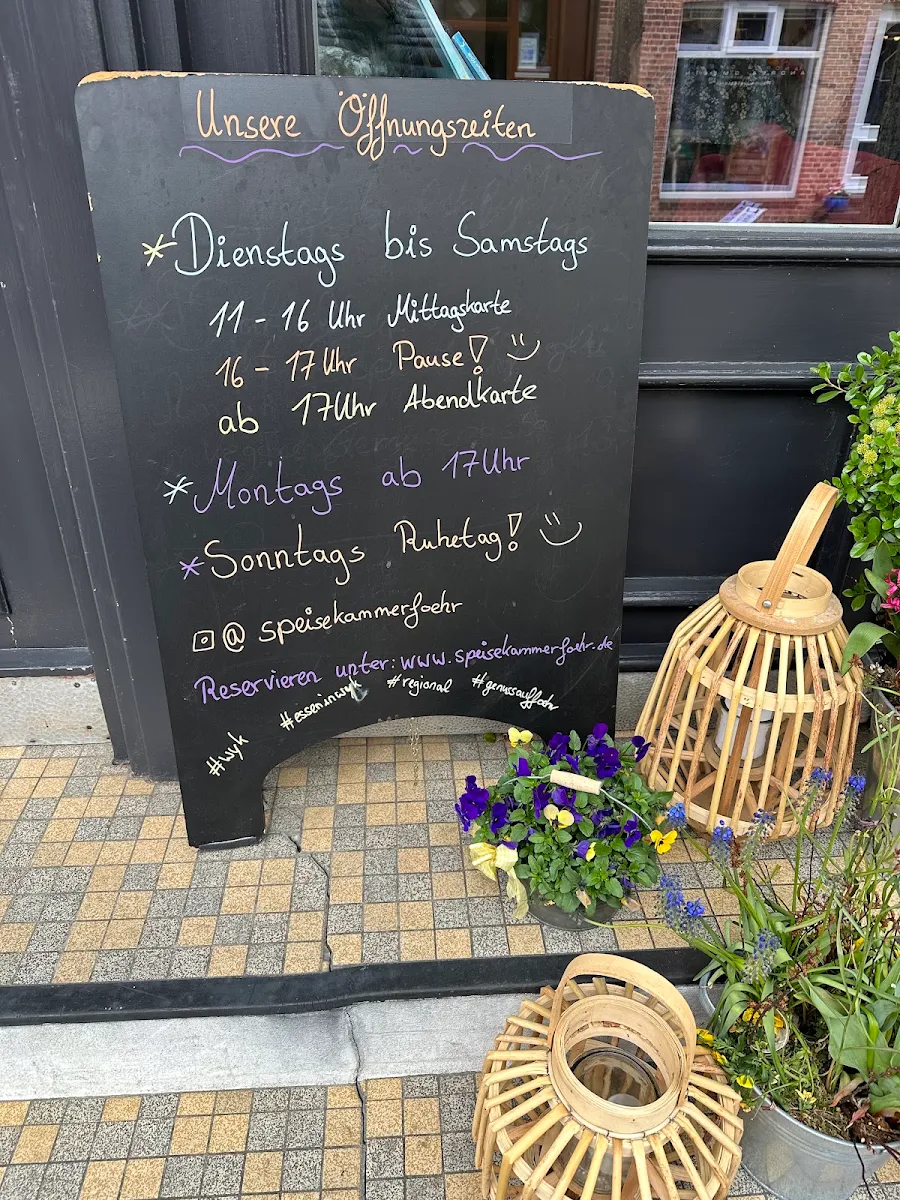 Unsere Öffnungszeiten
*Dienstags bis Samstags
11 - 16 Uhr Mittagskarte
16 - 17 Uhr Pause!
ab 17 Uhr Abendkarte
*Montags ab 17 Uhr
*Sonntags Ruhetag!
@ speisekammerfoehr
Reservieren unter: www.speisekammerfoehr.de
#wyk #esseninwyk #regional #genussauffoehr